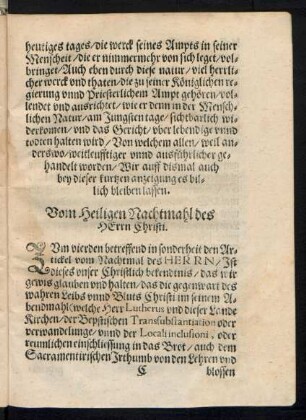 heutiges tages/die werck seines Ampts in seiner
Menscheit/die er nimmermehr von sich leget/vol-
bringet/Auch eben durch diese natur/viel herrli-
cher werck vnd thaten/die zu seiner Königlichen re-
gierung vnnd Priesterlichem Ampt gehören/vol-
lendet vnd ausrichtet/wie er denn in der Mensch-
lichen Natur/am Jungsten tage/sichtbarlich wi-
derkomen/vnd das Gericht/vber lebendige vnnd
todten halten wird/Von welchem allen/weil an-
derswo/weitleufftiger vnnd ausführlicher ge-
handelt worden/Wir auff dismal auch
bey dieser kurtzen anzeigung es bil-
lich bleiben lassen.
Vom Heiligen Nachtmahl des
HErrn Christi.
ZVm vierden betreffend in sonderheit den Ar-
tickel vom Nachtmal des HERRN/Ist
dieses vnser Christlich bekendtnis/das wir
gewis glauben vnd halten/das die gegenwart des
wahren Leibs vnnd Bluts Christi im seinem A-
bendmahl/welche Herr Lutherus vnd dieser Lande
Kirchen/der Bepstischen Transsubstantiation oder
verwandelunge/vnnd der Locali inclusioni, oder
reumlichen einschliessung in das Brot/auch dem
Sacramentirischen Irthumb von den Lehren vnd
C blossen